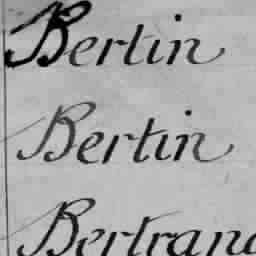 Bertin
Bertin
Bertrand